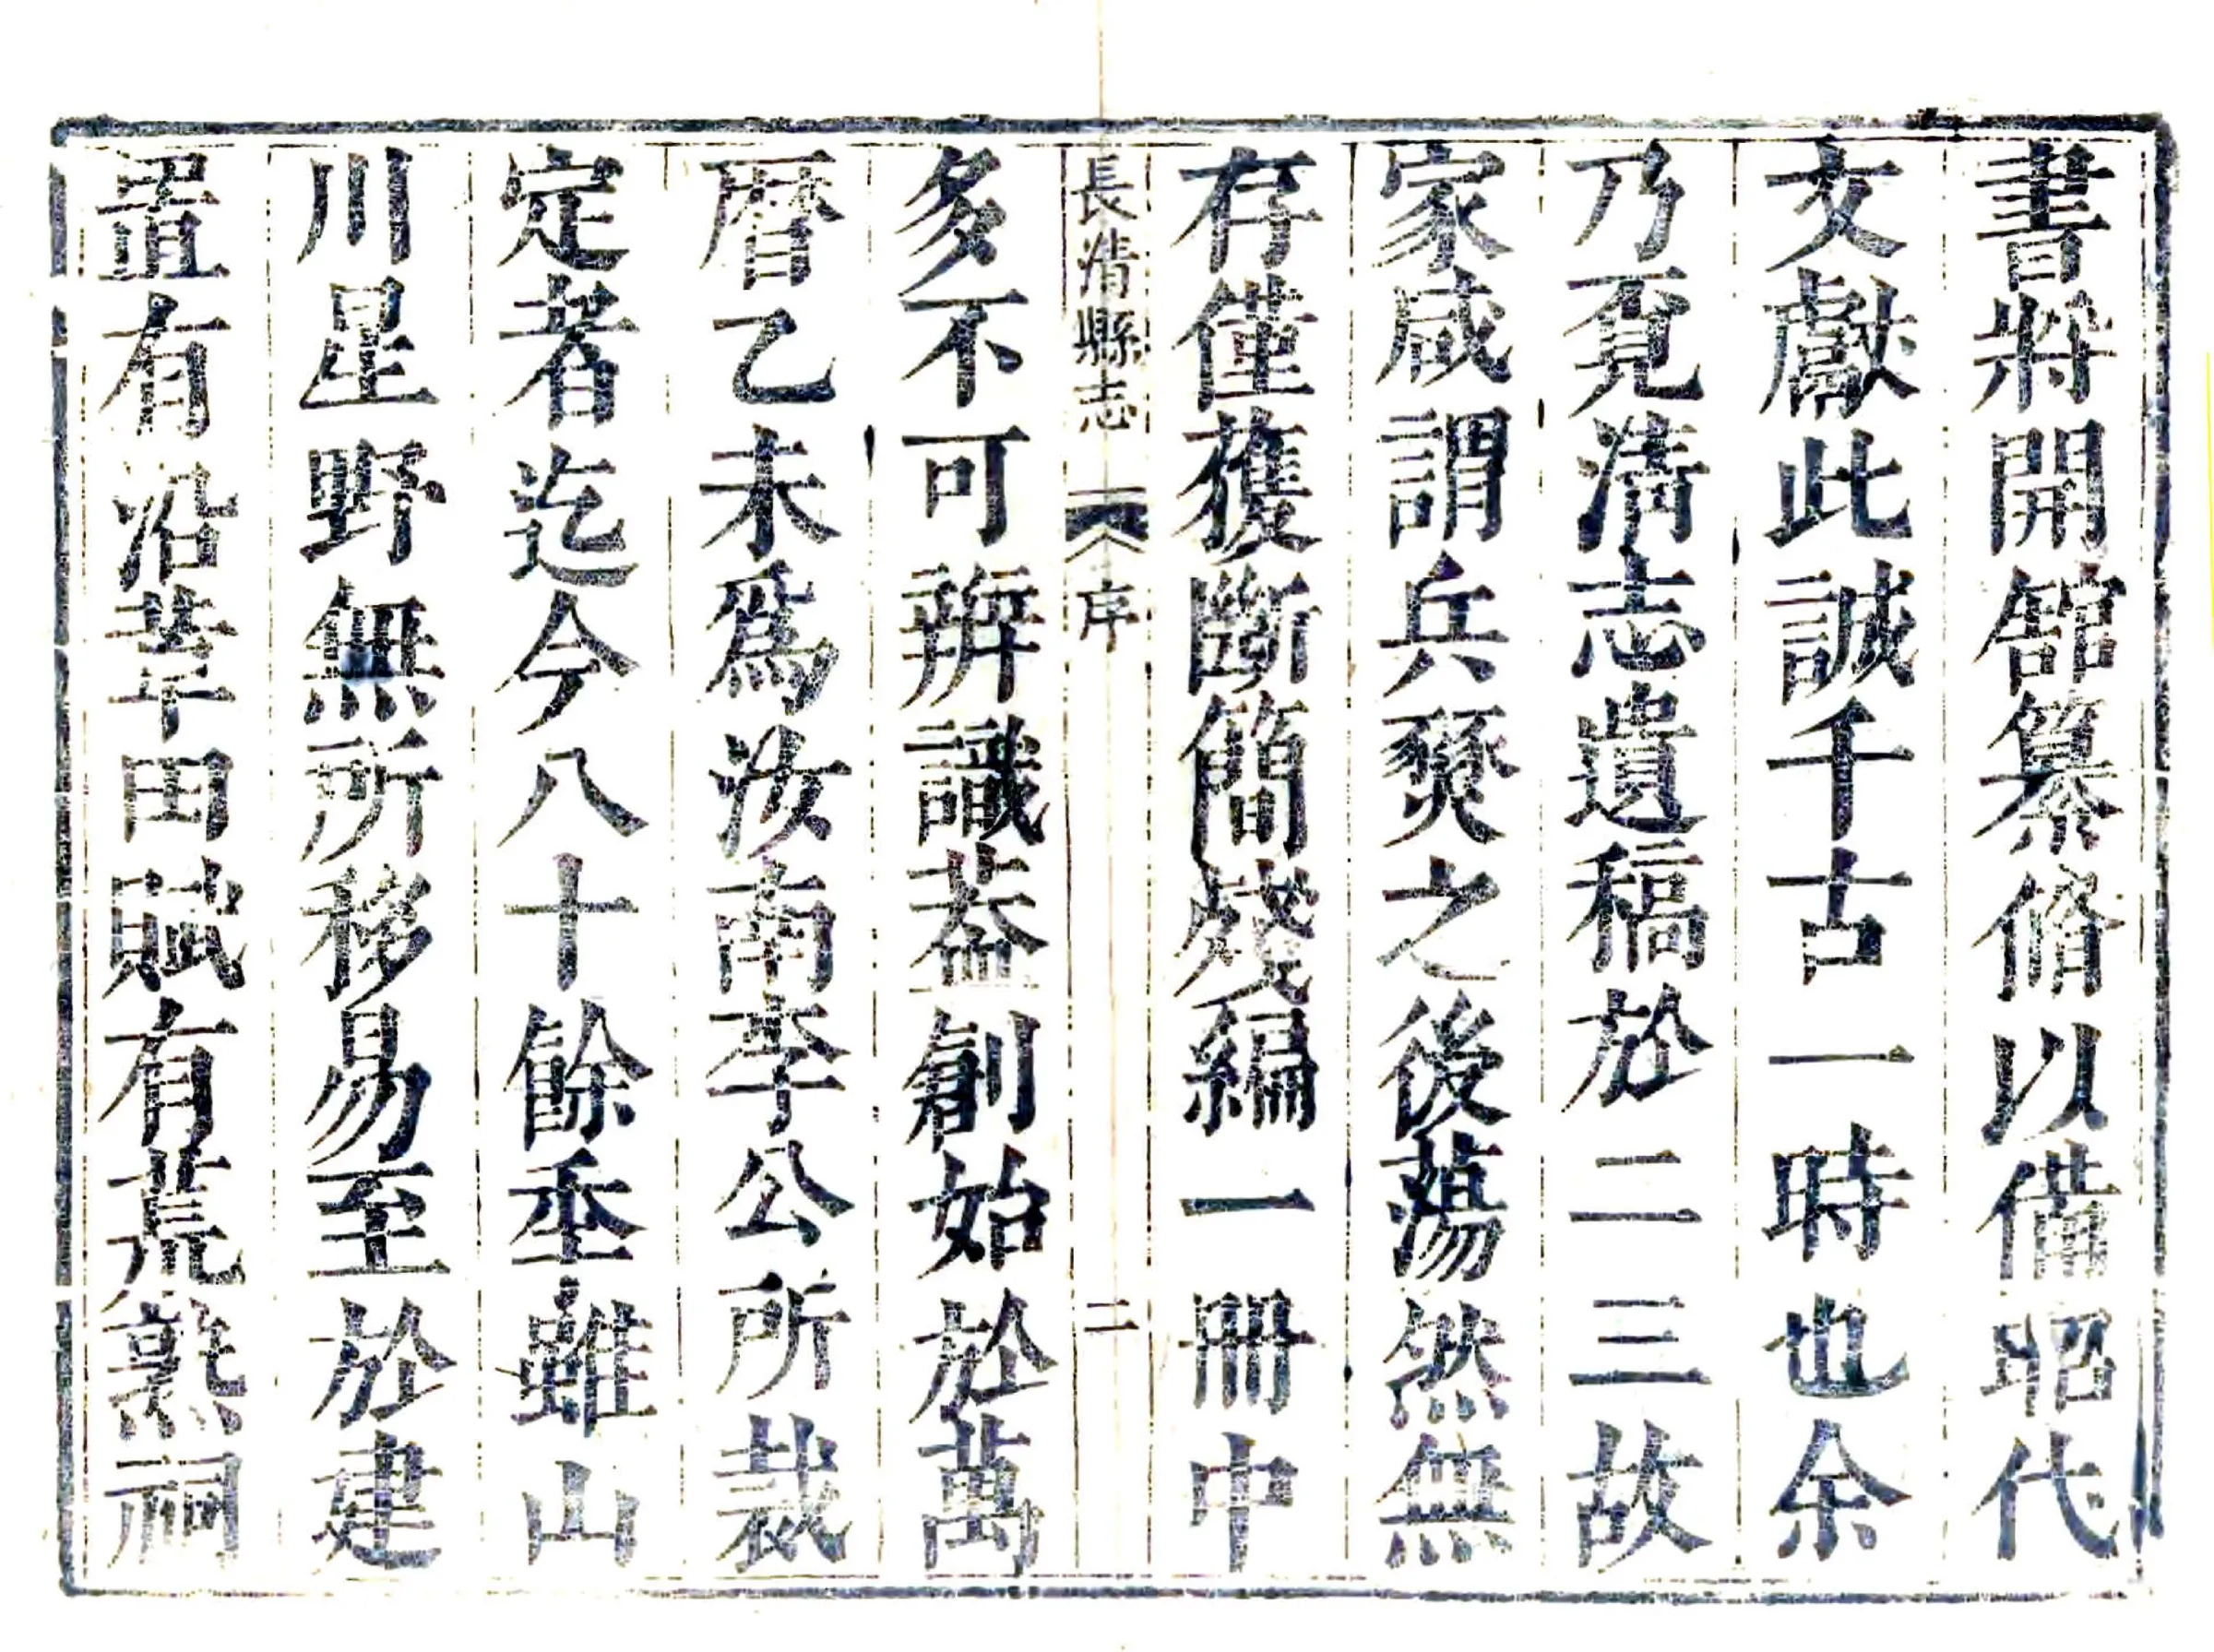 書將開舘纂脩以備昭代
文獻此誠千古一時也余
乃覓清志遺稿於二三故
家咸謂兵燹之後蕩然無
存僅獲斷簡殘編一冊中
長清縣志 序 二
多不可辨識葢創始於萬
曆乙未爲汝南李公所裁
定者迄今八十餘埀雖山
川星野無所移易至於建
置有沿革田賦有荒熟祠